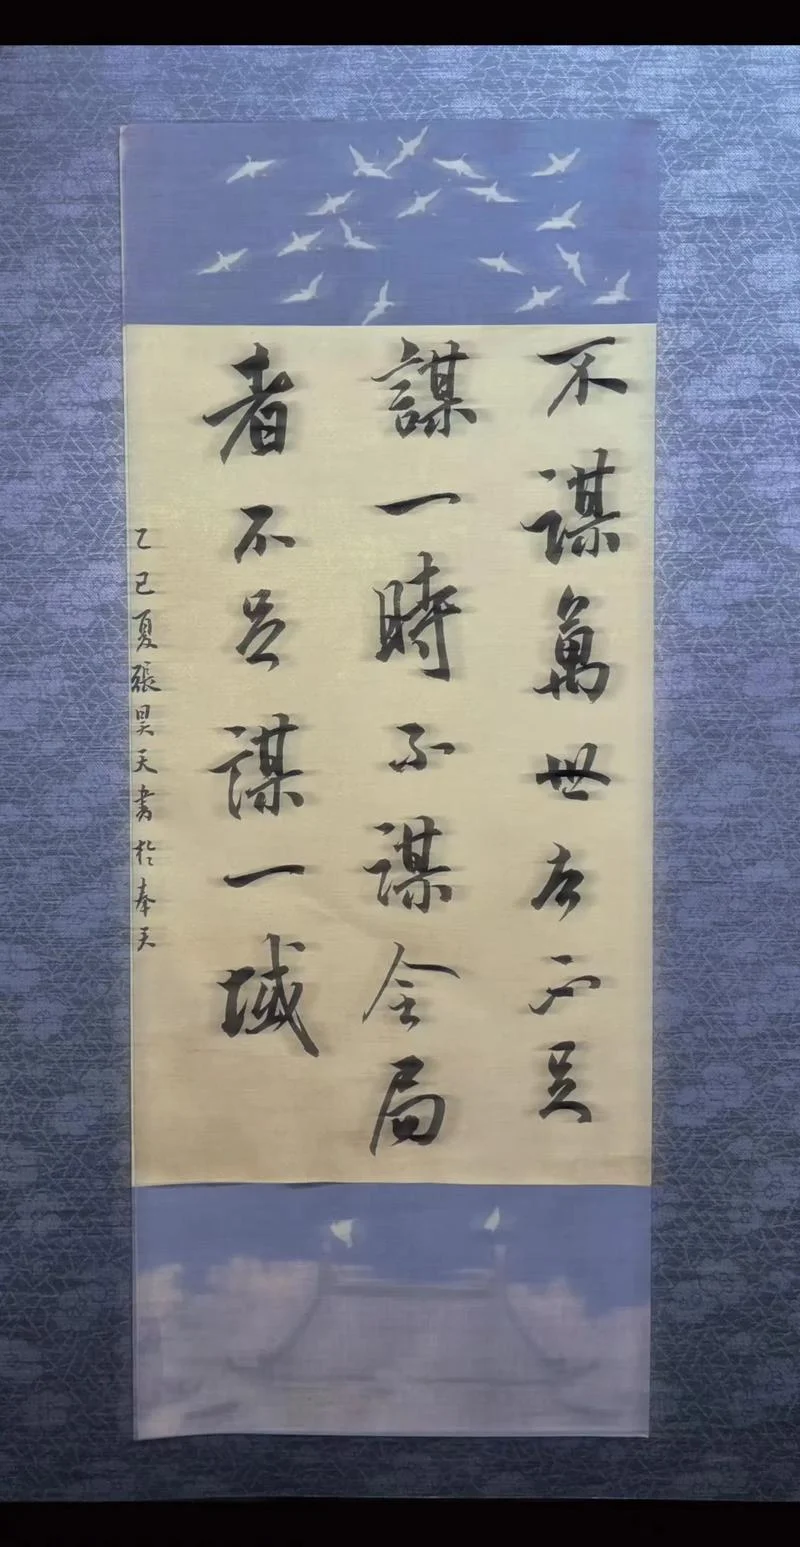 不謀萬世者不足
謀一時不謀全局
者不足謀一域
乙巳夏張昊天書於奉天